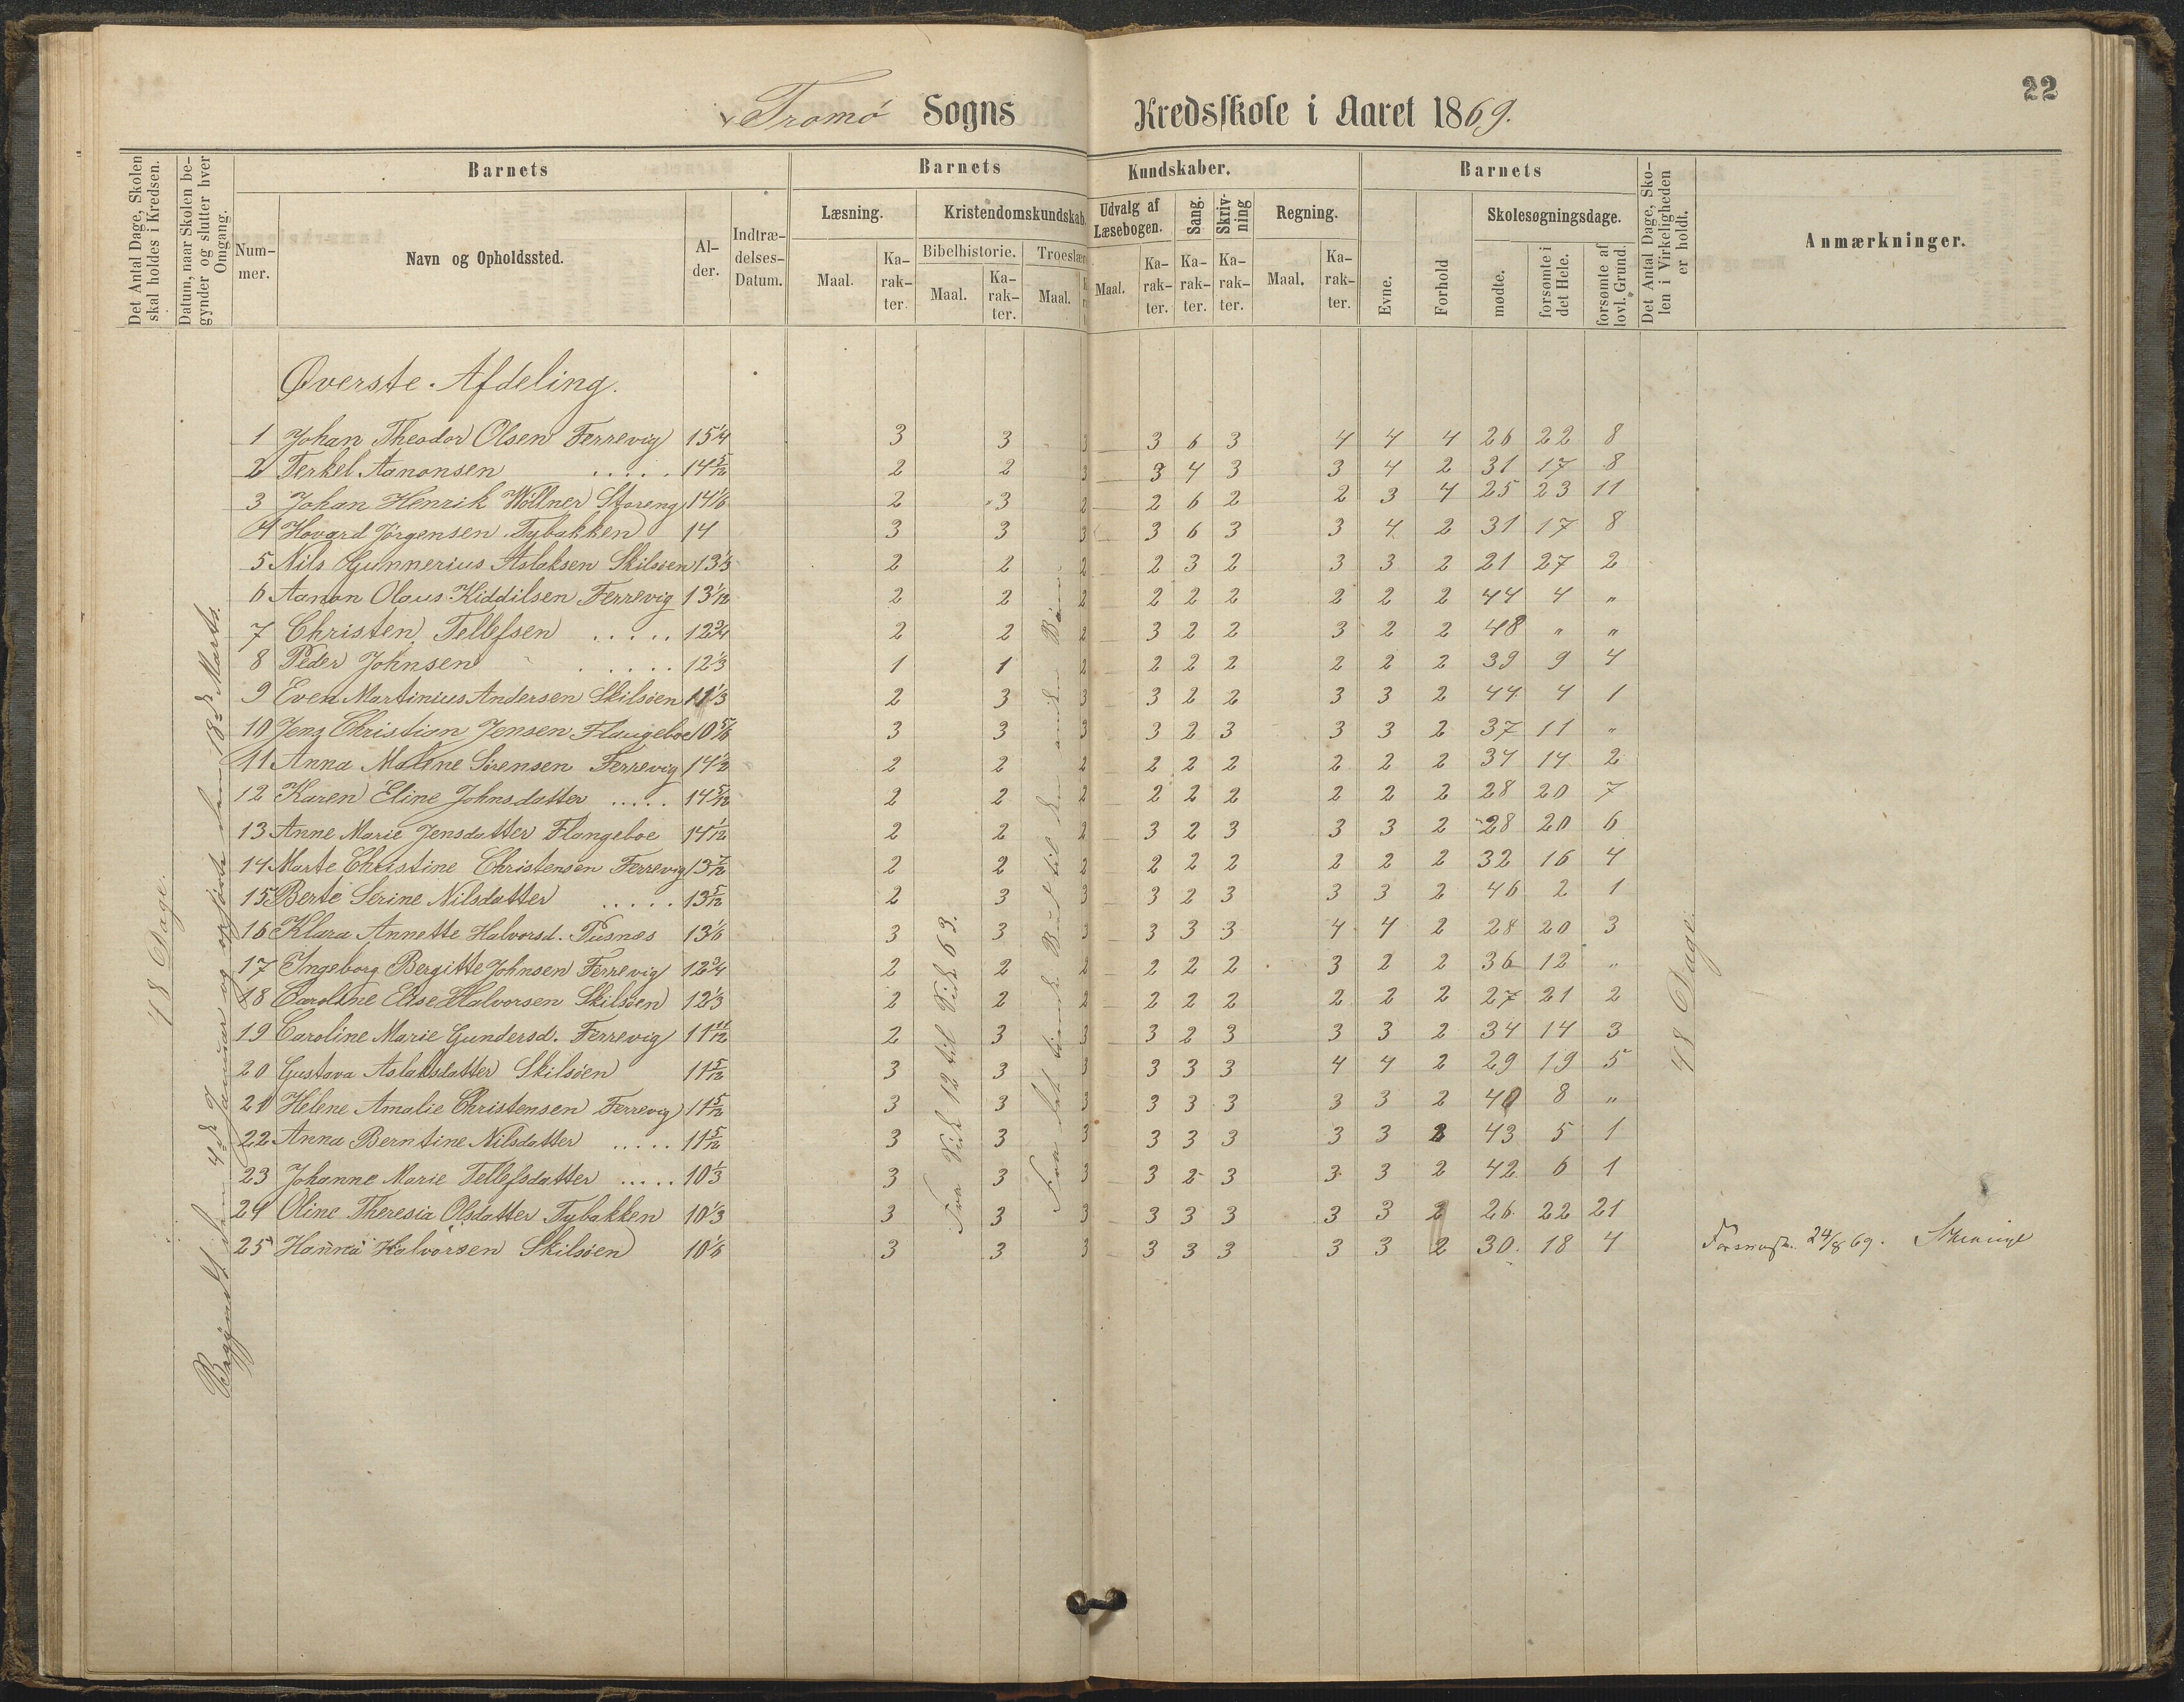 22
Tromö Sogns Kredsskole i Aaret 1869.
Det Antal Dage, Skolen skal holdes i Kredsen.
Datum, naar Skolen begynder og slutter hver Omgang.
Barnets
Nummer.
Navn og Opholdssted.
Alder.
Indtrædelses-Datum.
Barnets Kundskaber.
Læsning.
Maal.
Karakter.
Kristendomskundskab.
Bibelhistorie.
Maal.
Karakter.
Troeslær
Maal.
Udvalg af Læsebogen.
Maal.
Karakter.
Sang.
Karakter.
Skrivning
Karakter.
Regning.
Maal.
Karakter.
Barnets
Evne.
Forhold
Skolesøgningsdage.
mødte.
forsømte i det Hele.
forsømte af lovl. Grund.
Det Antal Dage, Skolen i Virkeligheden er holdt.
Anmærkninger.
48 Dage.
Begyndt den 4de Januar og opsörte den 18de Marts.
Øverste Afdeling.
1 Johan Theodor Olsen Ferrevig 15 1/4 3 3 3 3 6 3 4 4 4 26 22 8
2 Terkel Aanonsen ..... 14 5/12 2 2 3 3 4 3 3 4 2 31 17 8
3 Johan Henrik Wöllner Storeng 14 1/6 2 3 2 2 6 2 2 3 4 25 23 11
4 Hovard Jörgensen Tybakken 14 3 3 3 3 6 3 3 4 2 31 17 8
5 Nils Gunnerius Aslaksen Skilsöen 13 1/3 2 2 2 2 3 2 3 3 2 21 27 2
6 Aanon Olaus Kiddilsen Ferrevig 13 1/12 2 2 2 2 2 2 2 2 2 44 4 "
7 Christen Tellefsen ..... 12 3/4 2 2 2 3 2 2 3 2 2 48 " "
8 Peder Johnsen ..... 12 1/3 1 1 2 2 2 2 2 2 2 39 9 4
9 Even Martinius Andersen Skilsöen 11 1/3 2 3 3 3 2 2 3 3 2 44 4 1
10 Jens Christian Jensen Flangeboe 10 5/6 3 3 3 3 2 3 3 3 2 37 11 "
11 Anna Maline Sörensen Ferrevig 14 1/2 2 2 2 2 2 2 2 2 2 34 14 2
12 Karen Eline Johnsdatter ..... 14 5/12 2 2 2 2 2 2 2 2 2 28 20 7
13 Anne Marie Jensdatter Flangeboe 14 1/12 2 2 2 3 2 3 3 3 2 28 20 6
14 Marte Christine Christensen Ferrevig 13 7/12 2 2 2 2 2 2 2 2 2 32 16 4
15 Berte Serine Nilsdatter ..... 13 5/12 2 3 3 3 2 3 3 3 2 46 2 1
16 Klara Annette Halvorsd. Pusnæs 13 1/6 3 3 3 3 3 3 4 4 2 28 20 3
17 Ingeborg Bergitte Johnsen Ferrevig 12 3/4 2 2 2 2 2 2 3 2 2 36 12 "
18 Caroline Elise Halvorsen Skilsöen 12 1/3 2 2 2 2 2 2 2 2 2 27 21 2
19 Caroline Marie Gundersd. Ferrevig 11 11/12 2 3 3 3 2 3 3 3 2 34 14 3
20 Gustava Aslaksdatter Skilsöen 11 5/12 3 3 3 3 3 3 4 4 2 29 19 5
21 Helene Amalie Christensen Ferrevig 11 5/12 3 3 3 3 3 3 3 3 2 40 8 "
22 Anna Berntine Nilsdatter ..... 11 5/12 3 3 3 3 3 3 3 3 2 43 5 1
23 Johanne Marie Tellefsdatter ..... 10 1/3 3 3 3 3 2 3 3 3 2 42 6 1
24 Oline Theresia Olsdatter Tybakken 10 1/3 3 3 3 3 3 3 3 3 2 26 22 21
25 Hanna Halvorsen Skilsöen 10 1/6 3 3 3 3 3 3 3 3 2 30 18 4
Fra Side 12 til Side 63.
Fra det tiende Bud til den anden Bön
48 Dage.
24/8 69.